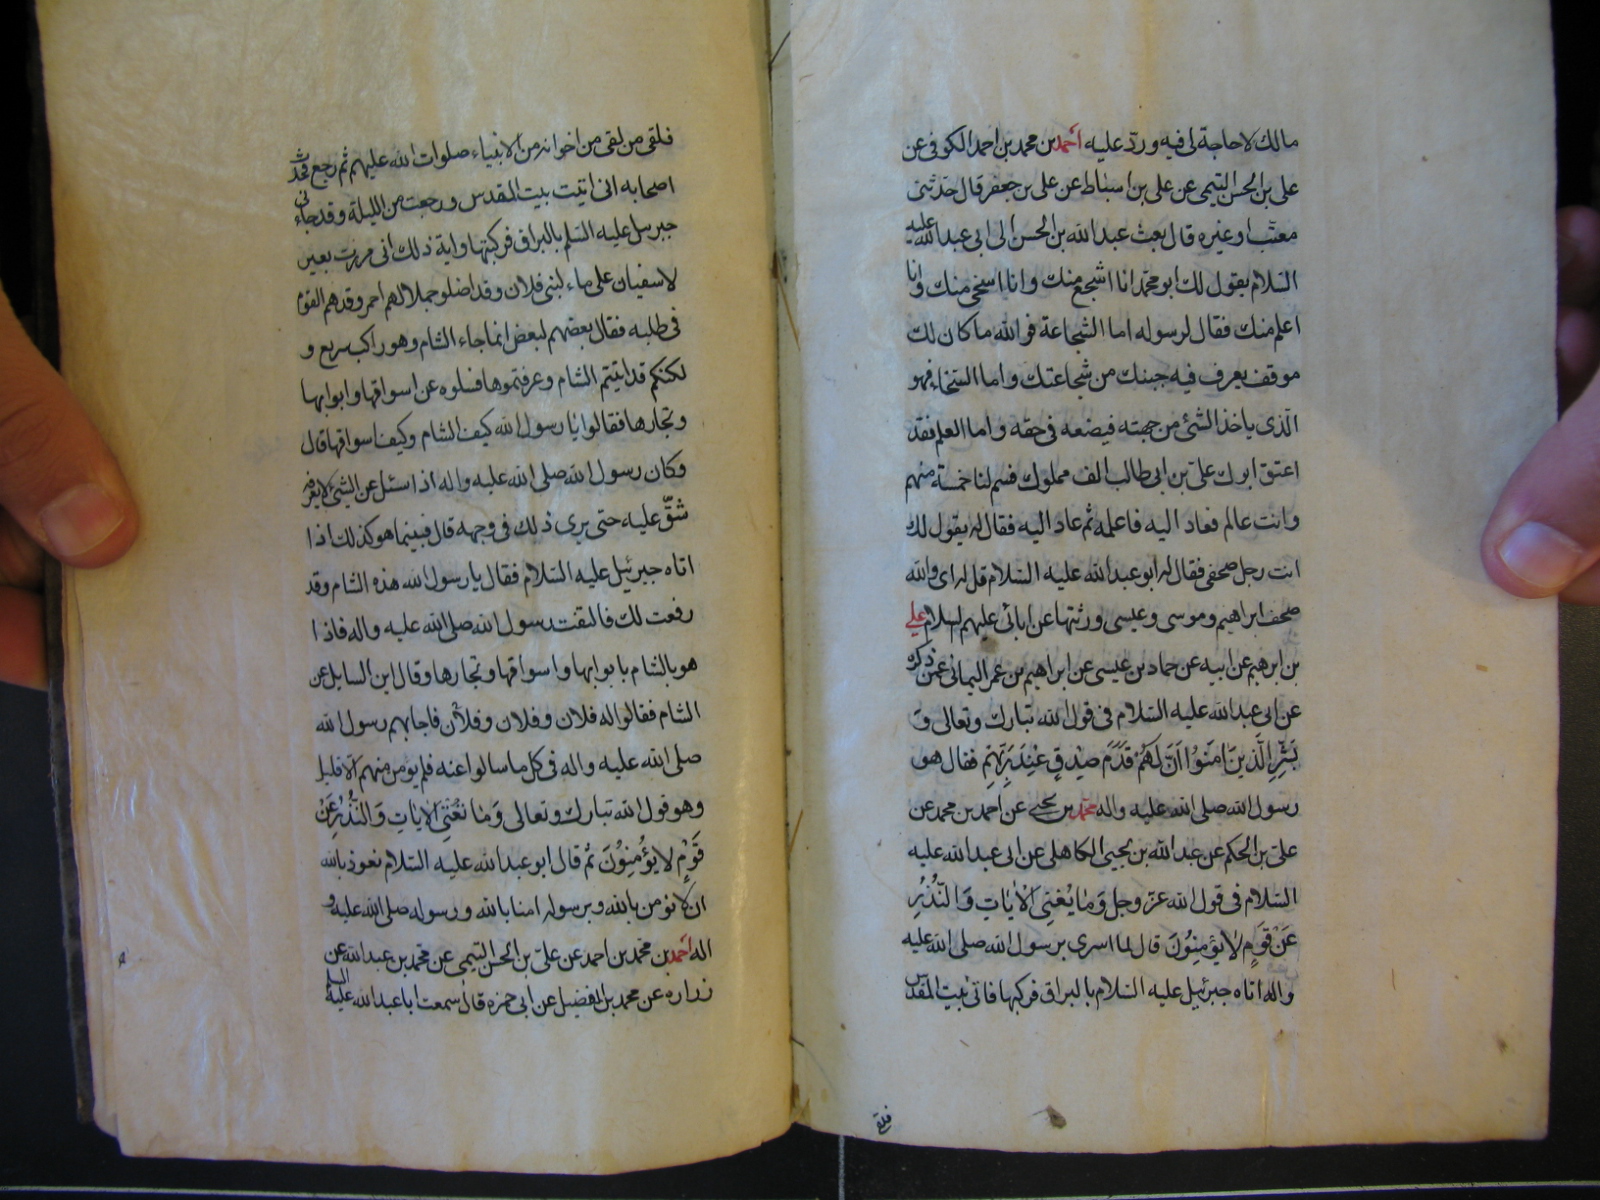 مالك لاحاجة لى فيه ورد عليه أحمد بن محمد بن احمد الكوفى عن
على بن الحسن التيمى عن على بن اسباط عن على بن جعفر قال حدثنى
معتب اوغيره قال بعث عبدالله بن الحسن الى ابى عبدالله عليه
السلام يقول لك ابومحمد انا اشجع منك وانا اسخى منك وانا
اعلم منك فقال لرسوله اما الشجاعة فوالله ماكان لك
موقف يعرف فيه جبنك من شجاعتك واما السخاء فهو
الذى ياخذ الشئ من جهته فيضعه فى حقه واما العلم فقد
اعتق ابوك على بن ابى طالب الف مملوك فسم لنا خمسة منهم
وانت عالم فعاد اليه فاعلمه ثم عاد اليه فقال له يقول لك
انت رجل صحفى فقال له ابوعبدالله عليه السلام قل له اى والله
صحف ابراهيم وموسى وعيسى ورثتها عن ابائى عليهم السلام على
بن ابرهيم عن ابيه عن حماد بن عيسى عن ابراهيم بن عمر اليمانى عمن ذكره
عن ابى عبدالله عليه السلام فى قول الله تبارك وتعالى وَ
بَشِّرِ الَّذينَ امَنُوُا اَنَّ لَهُمْ قَدَمَ صِدْقٍ عِنْدَ رَبِّهِمْ فقال هو
رسول الله صلى الله عليه واله محمد بن يحيى عن احمد بن محمد عن
على بن الحكم عن عبدالله بن يحيى الكاهلى عن ابى عبدالله عليه
السلام فى قول الله عز وجل وَمٰا يُغْنِى الْاٰيٰاتِ وَالنُّذُرُ
عَنْ قَوَمٍ لٰا يؤمِنِوُنَ قال لما اسرى برسول الله صلى الله عليه
واله اتاه جبرئيل عليه السلام بالبراق فركبها فاتى بيت المقدس
فلقى
فلقى من لقى من اخوانه من الانبياء صلوات الله عليهم ثم رجع فحدث
اصحابه انى اتيت بيت المقدس ورجعت من الليلة وقد جائنى
جبرئيل عليه السلم بالبراق فركبتها واية ذلك انى مررت بعير
لاسفيان على ماء لبنى فلان وقد اضلو جملا لهم احمر وقد هم القوم
فى طلبه فقال بعضهم لبعض انما جاء الشام وهو راكب سريع و
لكنكم قد اتيتم الشام وعرفتموها فسلوه عن اسواقها وابوابها
وتجارها فقالوا يا رسول الله كيف الشام وكيف اسواقها قال
وكان رسول الله صلى الله عليه واله اذا سئل عن الشئ لايعرفه
شقّ عليه حتى يرى ذلك فى وجهه قال فبينما هو كذلك اذا
اتاه جبرئيل عليه السلام فقال يا رسول الله هذه الشام وقد
رفعت لك فالتفت رسول الله صلى الله عليه واله فاذا
هو بالشام بابوابها واسواقها وتجارها وقال اين السايل عن
الشام فقالوا له فلان وفلان وفلان فاجابهم رسول الله
صلى الله عليه واله فى كل ما سالوا عنه فلم يومن منهم الا قليل
وهو قول الله تبارك وتعالى وَمٰا تُغْنِى الْاياتِ وَالنُّذُرُ عَنْ
قَوَّمٍ لايُؤمِنوُنَ ثم قال ابوعبدالله عليه السلام نعوذ بالله
ان لا نومن بالله وبرسوله امنا بالله ورسوله صلى الله عليه و
اله احمد بن محمد بن احمد عن على بن الحسن التيمى عن محمد بن عبدالله عن
زراره عن محمد بن الفضيل عن ابى حمزه قال سمعت اباعبدالله عليه السلم